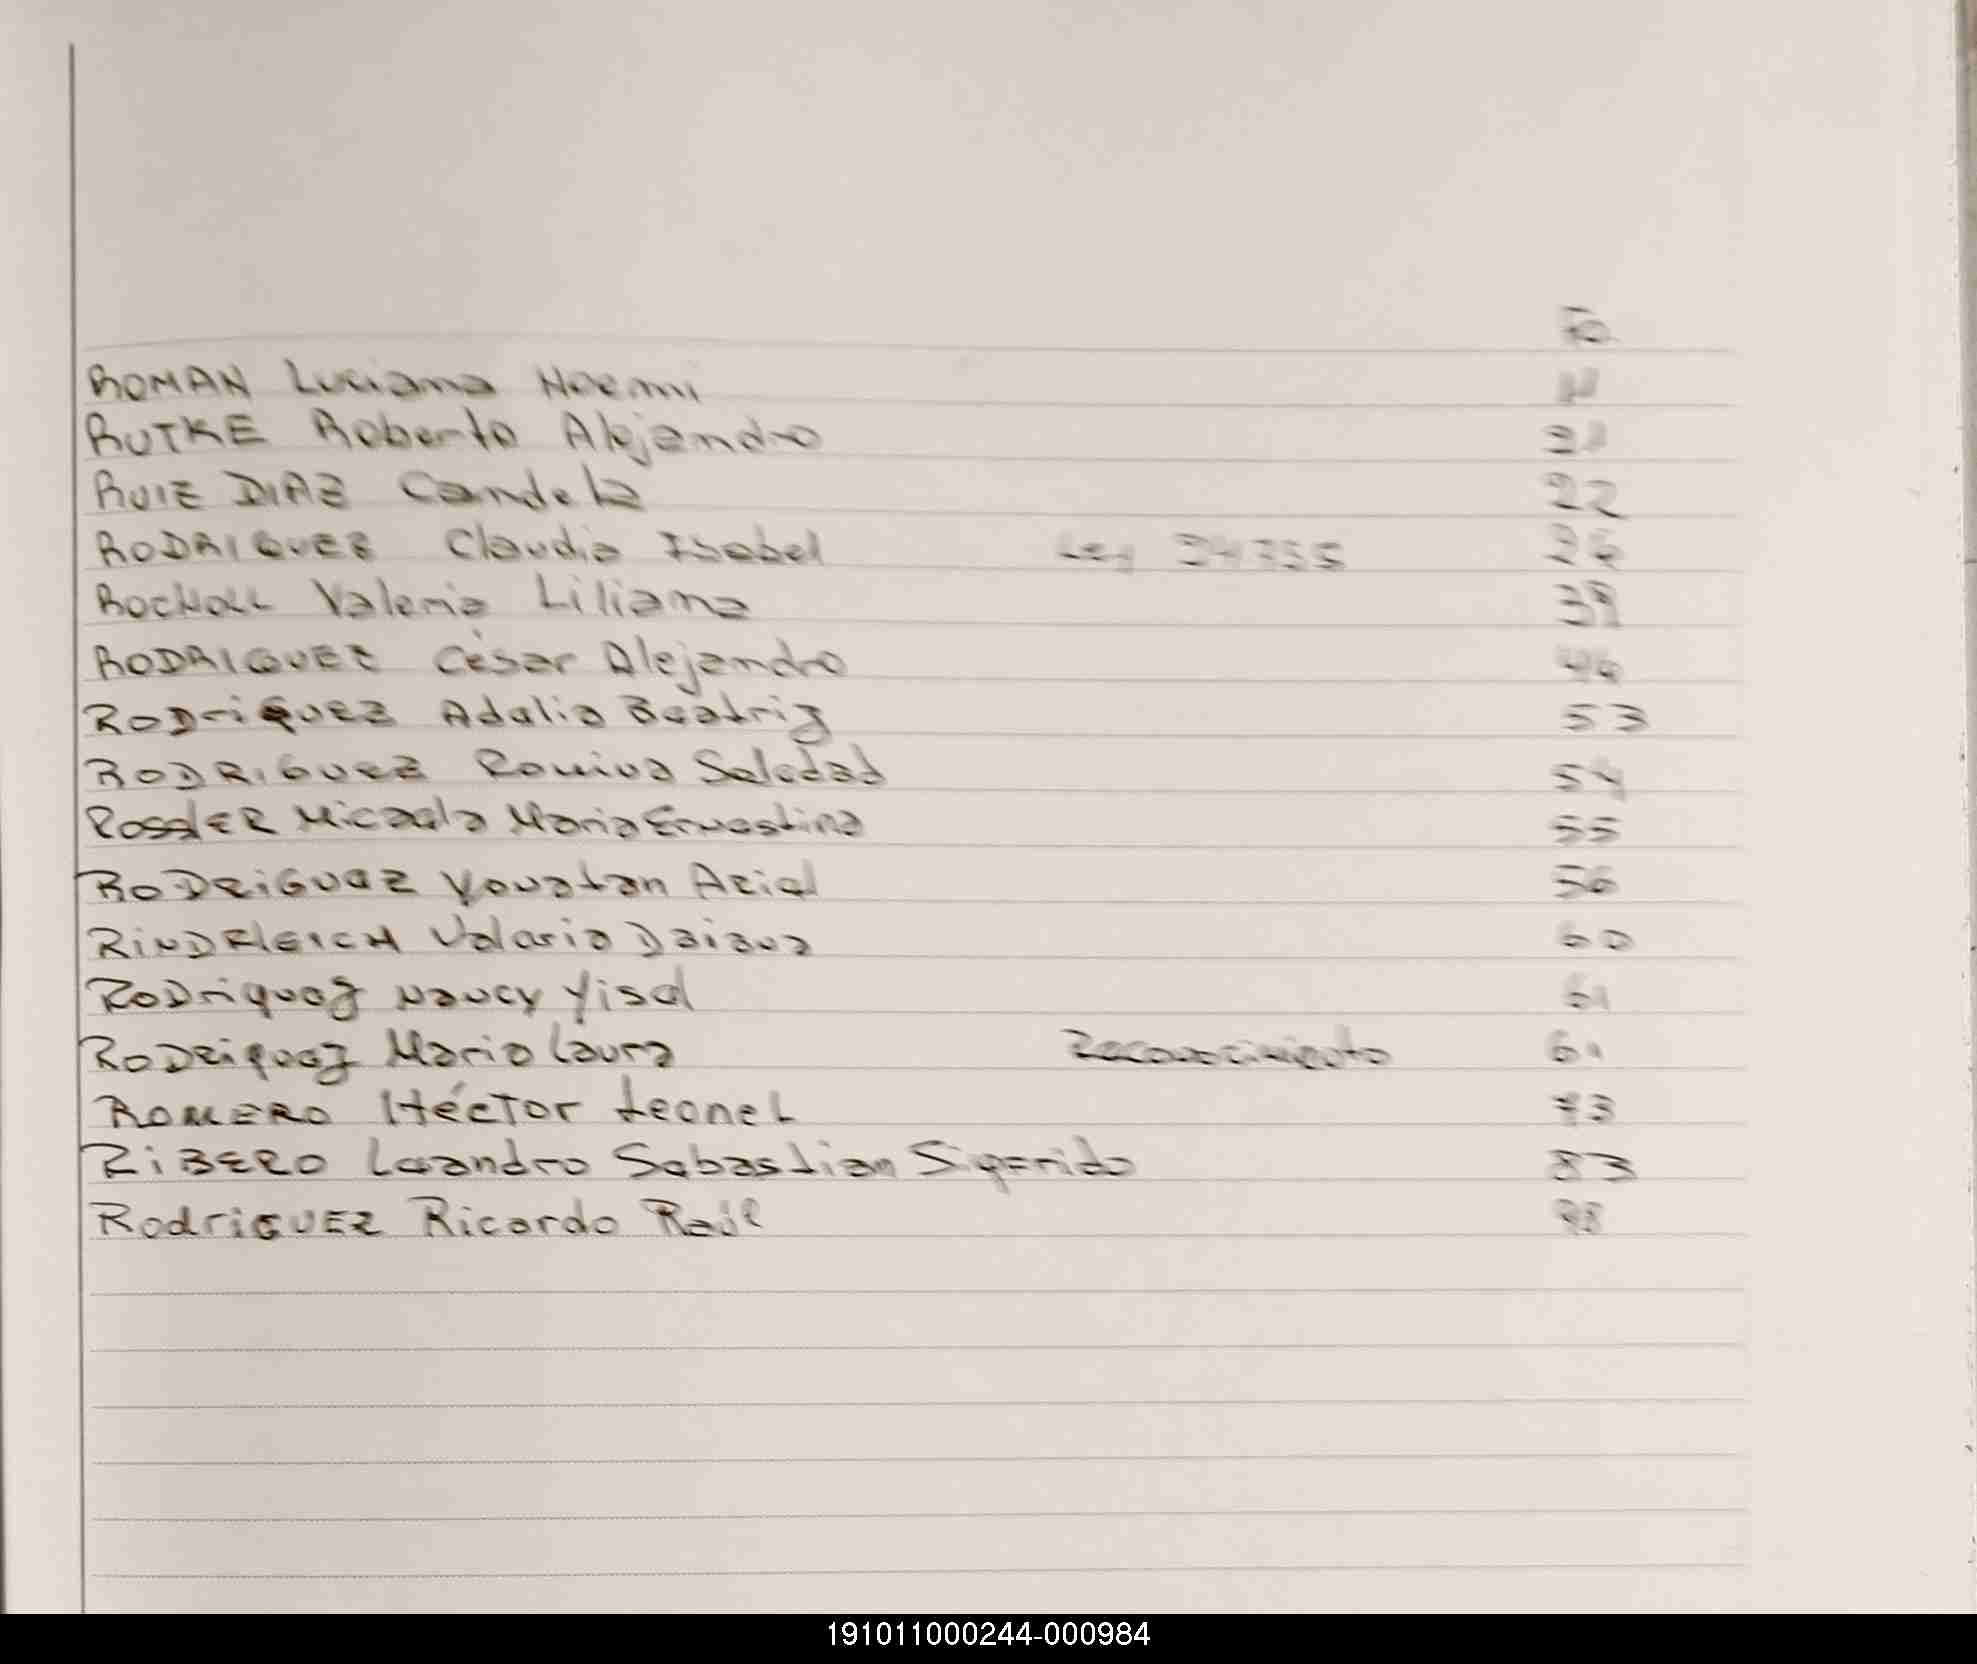 Fo
ROMAN Luciana Noemi
RUTKE Roberto Alejandro
RUIZ DIAZ Candela 22
RODRIGUEZ Claudia Isabel Ley 26
ROCHOLL Valeria Liliana 39
RODRIGUEZ César Alejandro 46
RODriGUEZ Adalia Beatriz 53
RODRIGUEZ Romina Soledad 54
RossleR Micaela Maria Ernestina 55
RODRiGUEZ Yonatan Ariel 56
RiNDFleiCH Valeria Daiana 60
RODriguez Nancy Yisel 61
RODRiguez Maria Laura Reconocimiento 61
ROMERO HécTor Leonel 73
RiBERO Leandro Sebastian Sigfrido 83
RodriGUEZ Ricardo Raúl
191011000244-000984